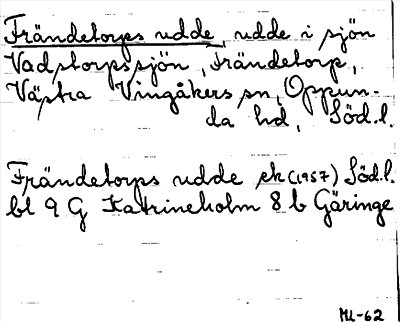 Frändetorps udde, udde i sjön
Vadstorpssjön, Frändetorp,
Västra Vingåkers sn, Oppun-
da hd, Söd.l.
Frändetorps udde ek (1957) Söd.l.
bl 9 G Katrineholm 8 b Göringe
ML-62